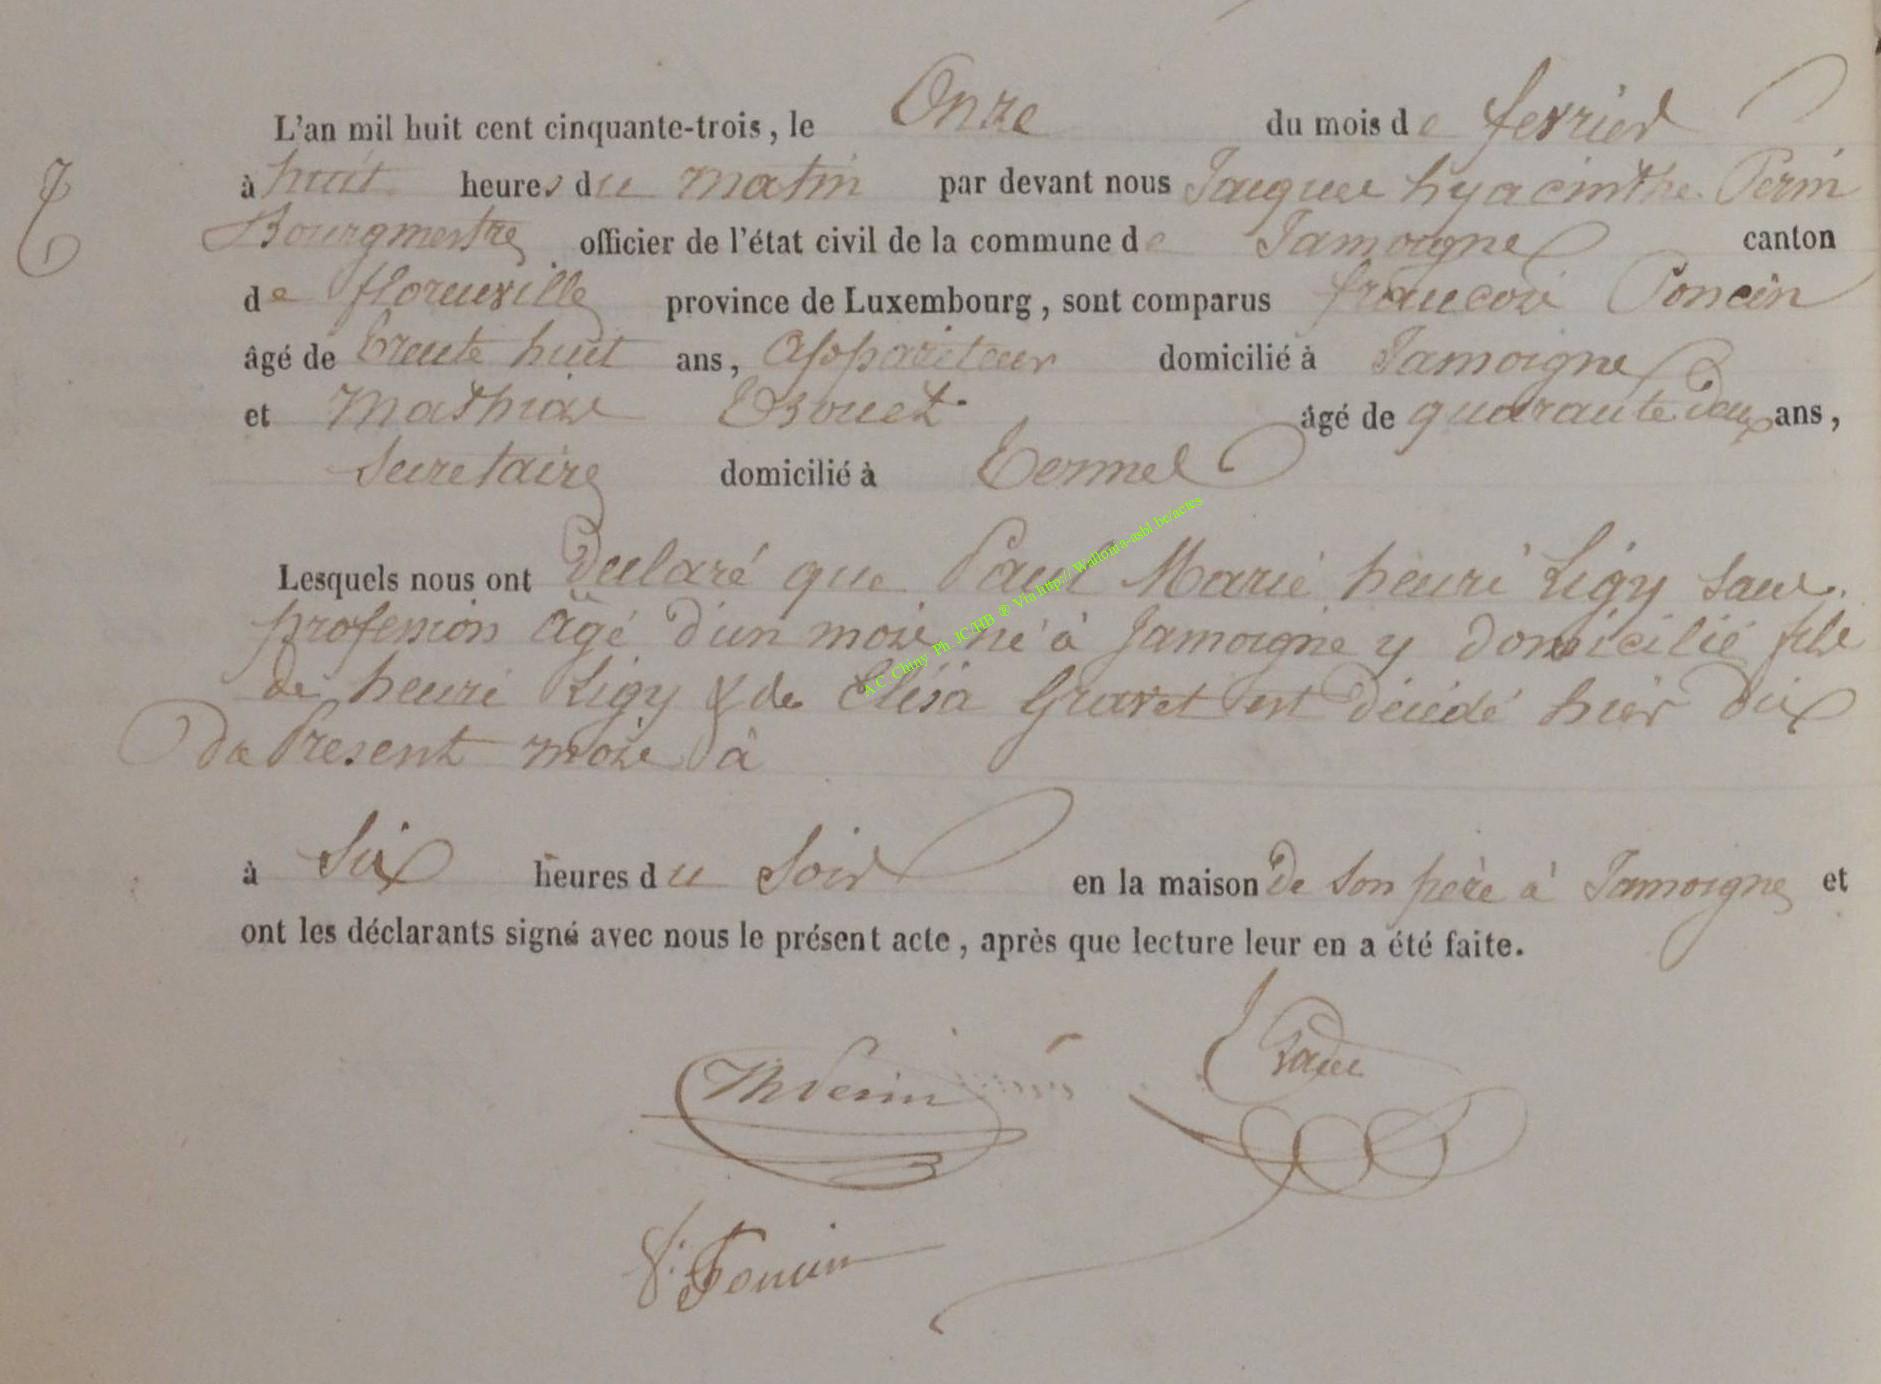 L'an mil huit cent cinquante-trois, le Onze du mois de fevrier
à huit heures du matin par devant nous Jacques hyacinthe Perin
Bourgmestre officier de l'état civil de la commune de Jamoigne canton
de florenville province de Luxembourg, sont comparus francois Poncin
âgé de trente huit ans, Appariteur domicilié à Jamoigne
et Mathias âgé de quarante deux ans,
Secretaire domicilié à Termel
Lesquels nous ont declaré que Paul Marie henri Ligy sans
profession âgé d'un mois né à Jamoigne y domicilié fils
de henri Ligy & de Elisa Gravet est décédé hier dix
du Present mois à
à Six heures du Soir en la maison de son père à Jamoigne et
ont les déclarants signé avec nous le présent acte, après que lecture leur en a été faite.
Perin
f. Poncin
A.C. Chiny Ph. JC/HB ® Via http:// Wallonia-asbl.be/actes